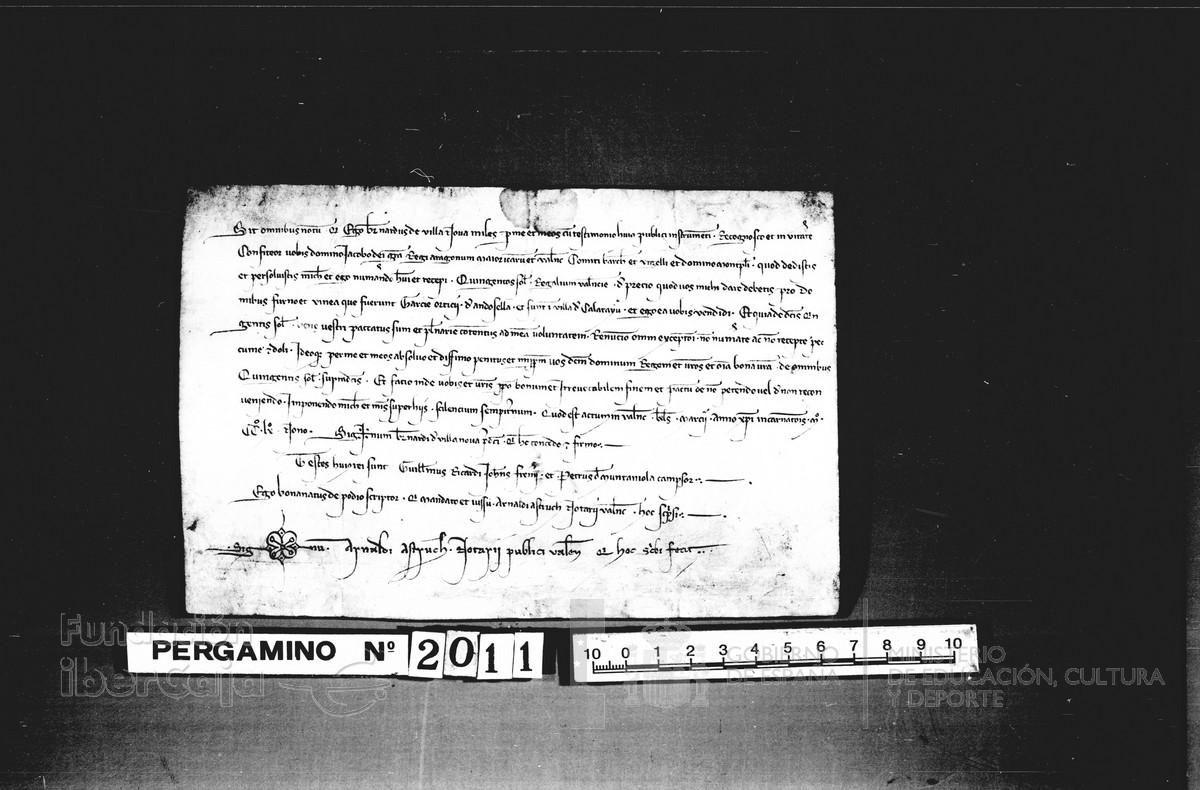 Sit omnibus notū qđ Ego B̄rnardus de villa noua miles per me et meos cū testimonio huius publici instrumenti Recognosco et in vitate
Confiteor uobis domino Jacobo dei gr̄a Regi aragonum maioricarum et valn̄c Comiti barch̄ et vrgelli et domino montpl̄i quod dedistis
et persoluistis mich̄ et ego numerando habui et recepi Quingentos sol̄ Regalium valencie de precio quod uos michi dare debetis pro do
mibus furno et vinea que fuerunt Garcie orticij de andosella et sunt in villa de Calataiu et ego ea uobis vendidi Et quia de dictis Quin
gentis sol̄ bene vestri paccatus sum et plenarie contentus ad mea uoluntatem Renūcio omni exceptioi no numerate ac nō recepte pec
cunie et doli Ideoq̄ per me et meos absoluo et diffinio penitus et imppm̄ uos dc̄m dominum Regem et uros et oīa bona ura de omnibus
Quingentis sol̄ supradictis Et facio inde uobis et uris bonum et irreuocabilem finem et pactū de nō petendo uel de non recon
ueniendo Imponendo mich̄ et meis super hijs silencium sempiternum Quod est actum in valn̄c marcij anno xp̄i incarnatōis mo
CCo Lo Nono Sig num B̄rnardi de villa noua p̄dc̄i Qui hec concedo et firmo
Testes hui rei sunt Guill̄mus Ricardi Joh̄ns et Petrus de muntaniola campsor
Ego bonanatus de podio scriptor Qui mandato et iussu Arnaldi astruch Notarij valn̄c hoc scripsi
Sig num Arnaldi astruch Notarij publici valen̄ Qui hoc sc̄bi fecit
Fundación
iberCaja
PERGAMINO Nº 2011
10 0 1 2 3 4 5 6 7 8 9 10
GOBIERNO
DE ESPAÑA
MINISTERIO
DE EDUCACIÓN, CULTURA
Y DEPORTE